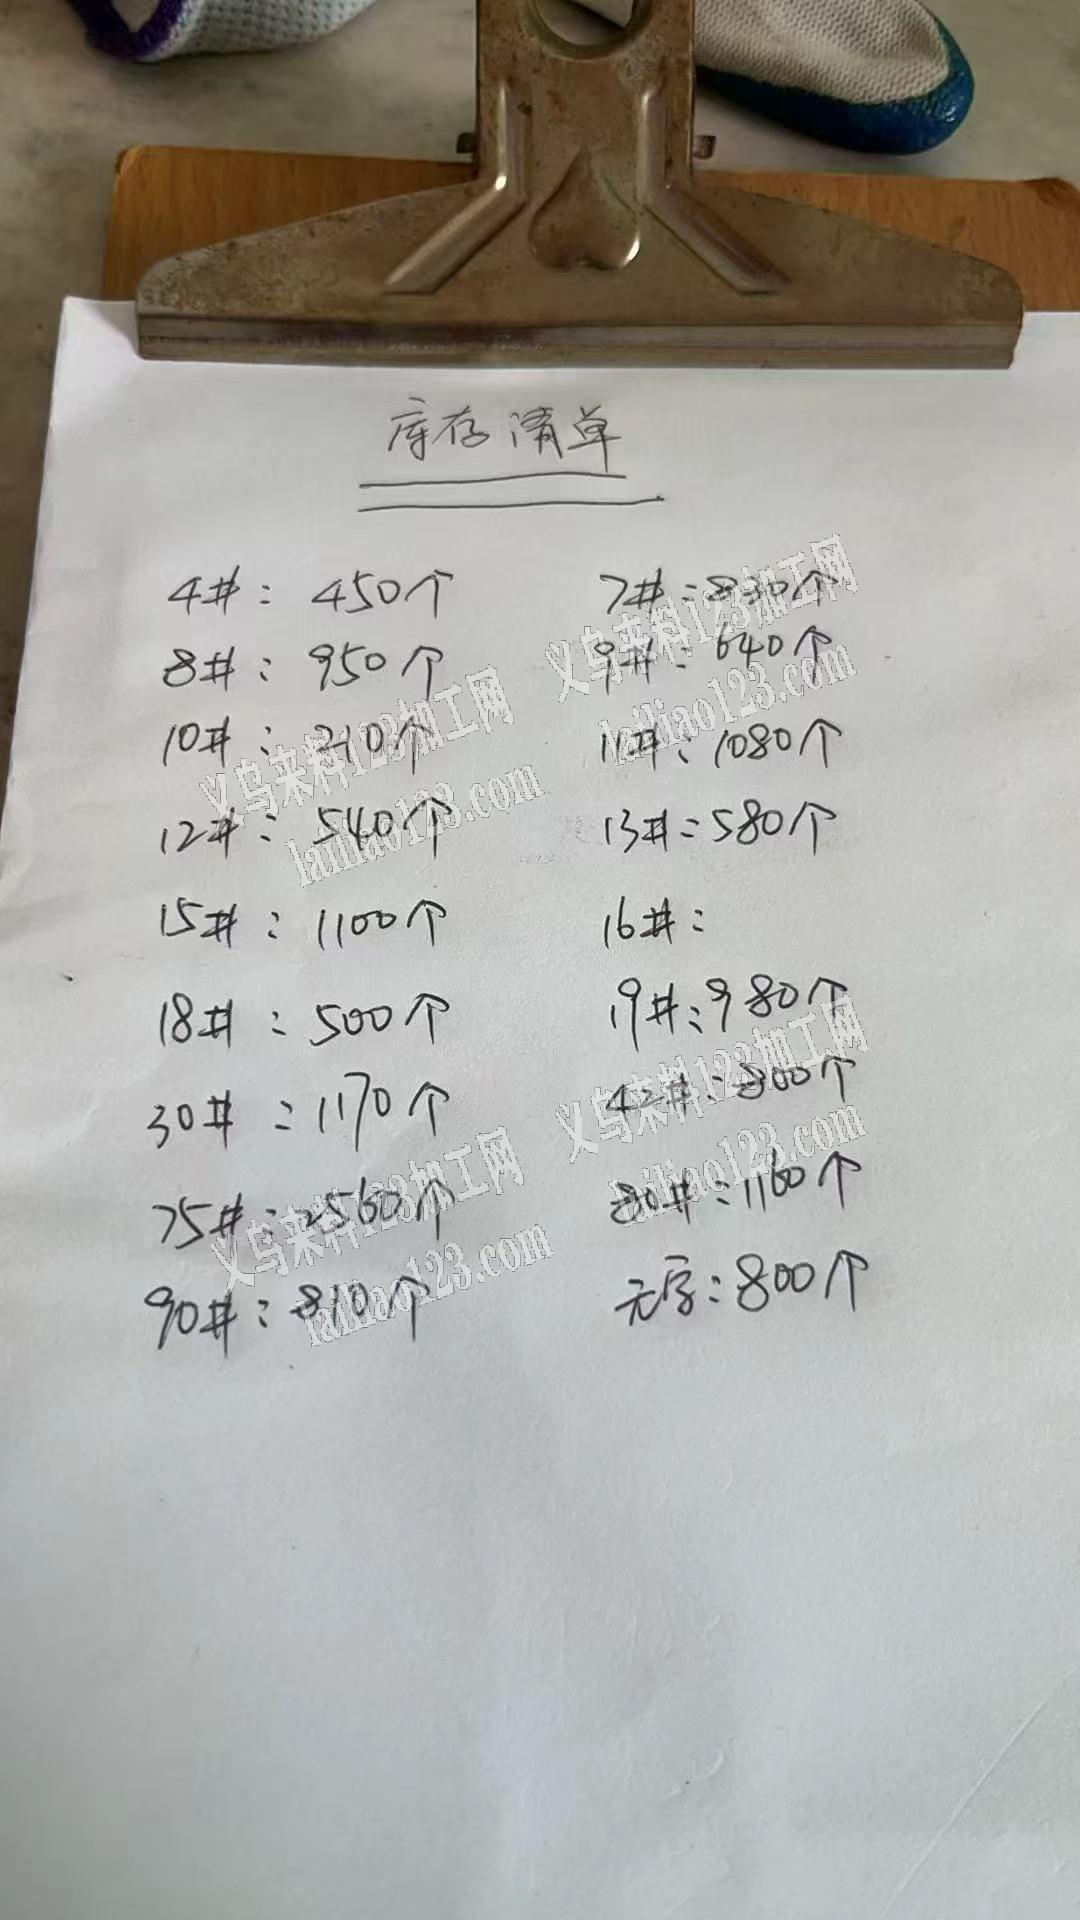 库存清单
4#: 450个 7#: 830个
8#: 950个 9#: 640个
10#: 210个 11#: 1080个
12#: 540个 13#: 580个
15#: 1100个 16#:
18#: 500个 19#: 980个
30#: 1170个 42#: 800个
75#: 2560个 80#: 1160个
90#: 810个 无字: 800个
义乌来料123加工网
lailiao123.com
义乌来料123加工网
lailiao123.com
义乌来料123加工网
lailiao123.com
义乌来料123加工网
lailiao123.com